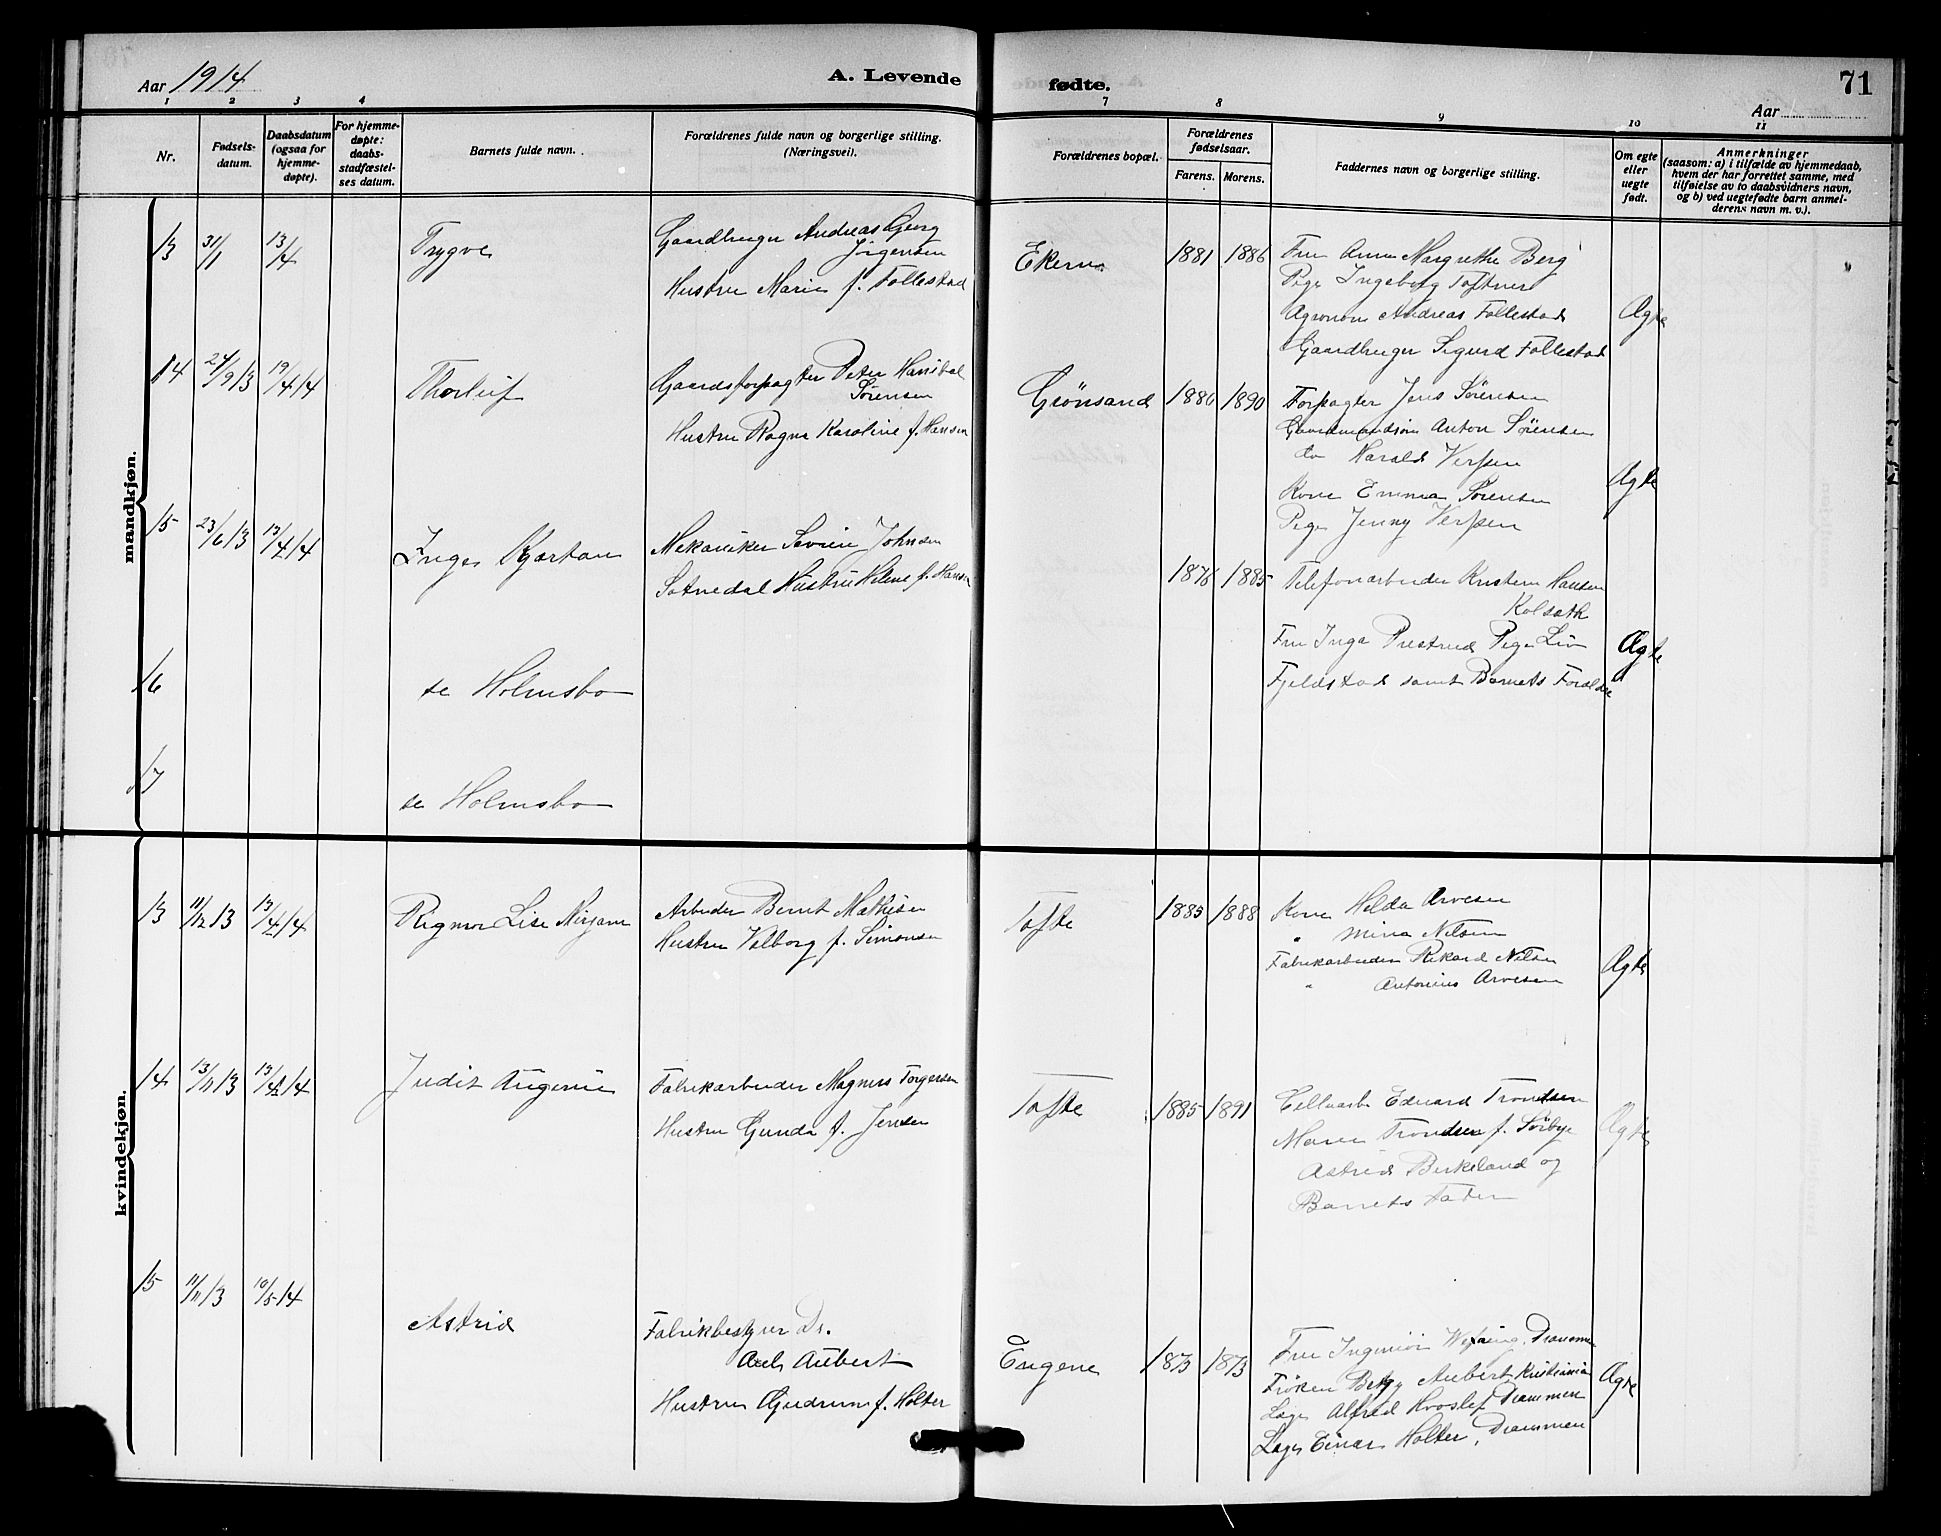 Aar 1914
A. Levende
fødte.
71
Aar
1 2 3 4 7 8 9 10 11
Nr.
Fødsels-
datum.
Daabsdatum
(ogsaa for
hjemme-
døpte).
For hjemme-
døpte:
daabs-
stadfæstel-
ses datum.
Barnets fulde navn.
Forældrenes fulde navn og borgerlige stilling.
(Næringsvei).
Forældrenes bopæl.
Forældrenes
fødselsaar.
Farens. Morens.
Faddernes navn og borgerlige stilling.
Om egte
eller
uegte
født.
Anmerkninger
(saasom: a) i tilfælde av hjemmedaab,
hvem der har forrettet samme, med
tilføielse av to daabsvidners navn,
og b) ved uegtefødte barn anmel-
derens navn m. v.).
mandkjøn.
13 31/1 13/4 Trygve
Gaardbruger Andreas Georg
Jörgensen
Hustru Marie f. Follestad
Ekern 1881 1886
Fru Anna Margrethe Berg
Pige Ingeborg Toftner
Agronom Andreas Follestad
Gaardbruger Sigurd Follestad
Ægte
14 24/9 13 19/4 14 Thorleif
Gaardsforpagter Peter Hanibal
Sörensen
Hustru Ragna Karoline f. Hansen
Grönsand 1886 1890
Forpagter Jens Sörensen
Gaardmandsön Anton Sörensen
do Harald Verpen
Kone Emma Sörensen
Pige Jenny Verpen
Ægte
15 23/6 13 13/4 14 Inge Kjartan
Mekaniker Severin Johnsen
Sætredal Hustru Helene f. Hansen
1876 1885
Telefonarbeider Kristian Hansen
Kolsath
Fru Inga Prestrud Pige Liv
Fjeldstad samt Barnets Forældre
Ægte
16 se Holmsbo
17 se Holmsbo
kvindekjøn.
13 11/12 13 13/4 14 Rigmor Lise Mirjam
Arbeider Bernt Mathisen
Hustru Valborg f. Simonsen
Tofte 1885 1888
Kone Helda Arvesen
" Mina Nilsen
Fabrikarbeider Rikard Nilsen
" Antonius Arvesen
Ægte
14 13/11 13 13/4 14 Judit Augenie
Fabrikarbeider Magnus Torgersen
Hustru Gunda f. Jensen
Tofte 1885 1891
Celluarb. Edvard Trondsen
Maren Trondsen f. Sörbye
Astrid Birkeland og
Barnets Fader
Ægte
15 11/11 13 10/5 14 Astrid
Fabrikbestyrer Dr.
Axel Aubert
Hustru Gudrun f. Holter
Engene 1873 1873
Fru Ingeniör Wefring, Drammen
Fröken Betzy Aubert Kristiania
Læge Alfred Hvoslef Drammen
Læge Einar Holter, Drammen
Ægte